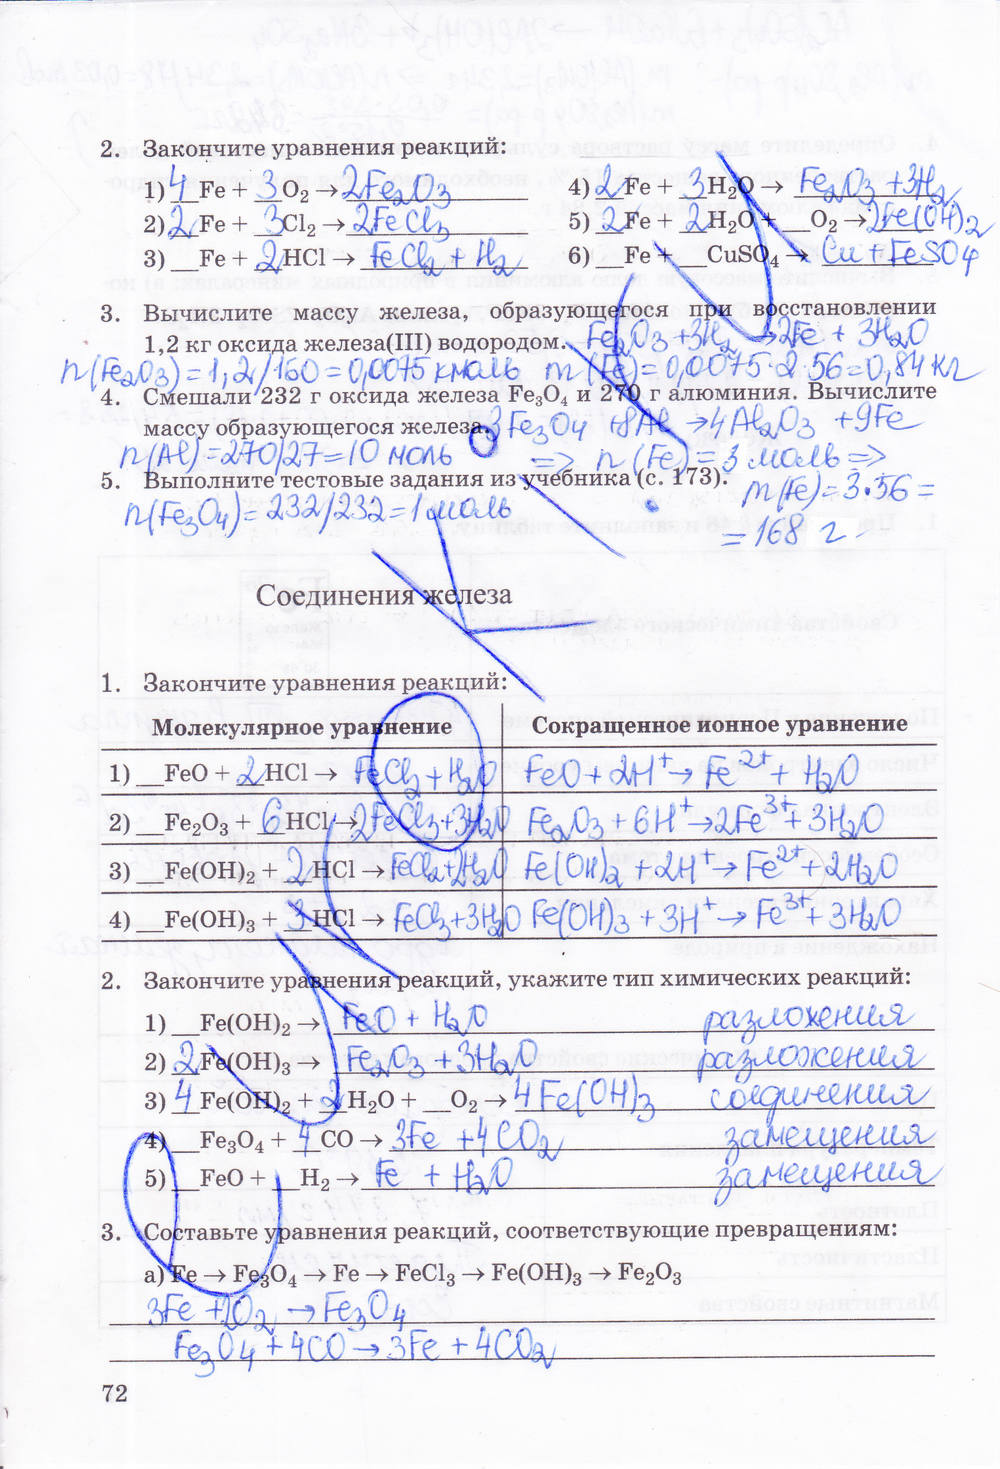 2. Закончите уравнения реакций:
1) 4 Fe + 3 O₂ → 2Fe₂O₃
4) 2 Fe + 3 H₂O → Fe₂O₃ + 3H₂
2) 2 Fe + 3 Cl₂ → 2FeCl₃
5) 2 Fe + 2 H₂O + __O₂ → 2Fe(OH)₂
3) __Fe + 2 HCl → FeCl₂ + H₂
6) __Fe + __CuSO₄ → Cu + FeSO₄
3. Вычислите массу железа, образующегося при восстановлении
1,2 кг оксида железа(III) водородом. Fe₂O₃ + 3H₂ → 2Fe + 3H₂O
n(Fe₂O₃) = 1,2/160 = 0,0075 кмоль m(Fe) = 0,0075·2·56 = 0,84 кг
4. Смешали 232 г оксида железа Fe₃O₄ и 270 г алюминия. Вычислите
массу образующегося железа. 3Fe₃O₄ + 8Al → 4Al₂O₃ + 9Fe
n(Al) = 270/27 = 10 моль => n(Fe) = 3 моль =>
5. Выполните тестовые задания из учебника (с. 173). m(Fe) = 3·56 =
n(Fe₃O₄) = 232/232 = 1 моль = 168 г
Соединения железа
1. Закончите уравнения реакций:
Молекулярное уравнение Сокращенное ионное уравнение
1) __FeO + 2 HCl → FeCl₂ + H₂O FeO + 2H⁺ → Fe²⁺ + H₂O
2) __Fe₂O₃ + 6 HCl → 2FeCl₃ + 3H₂O Fe₂O₃ + 6H⁺ → 2Fe³⁺ + 3H₂O
3) __Fe(OH)₂ + 2 HCl → FeCl₂ + 2H₂O Fe(OH)₂ + 2H⁺ → Fe²⁺ + 2H₂O
4) __Fe(OH)₃ + 3 HCl → FeCl₃ + 3H₂O Fe(OH)₃ + 3H⁺ → Fe³⁺ + 3H₂O
2. Закончите уравнения реакций, укажите тип химических реакций:
1) __Fe(OH)₂ → FeO + H₂O разложения
2) 2 Fe(OH)₃ → Fe₂O₃ + 3H₂O разложения
3) 4 Fe(OH)₂ + 2 H₂O + __O₂ → 4Fe(OH)₃ соединения
4) __Fe₃O₄ + 4 CO → 3Fe + 4CO₂ замещения
5) __FeO + __H₂ → Fe + H₂O замещения
3. Составьте уравнения реакций, соответствующие превращениям:
а) Fe → Fe₃O₄ → Fe → FeCl₃ → Fe(OH)₃ → Fe₂O₃
3Fe + 2O₂ → Fe₃O₄
Fe₃O₄ + 4CO → 3Fe + 4CO₂
72